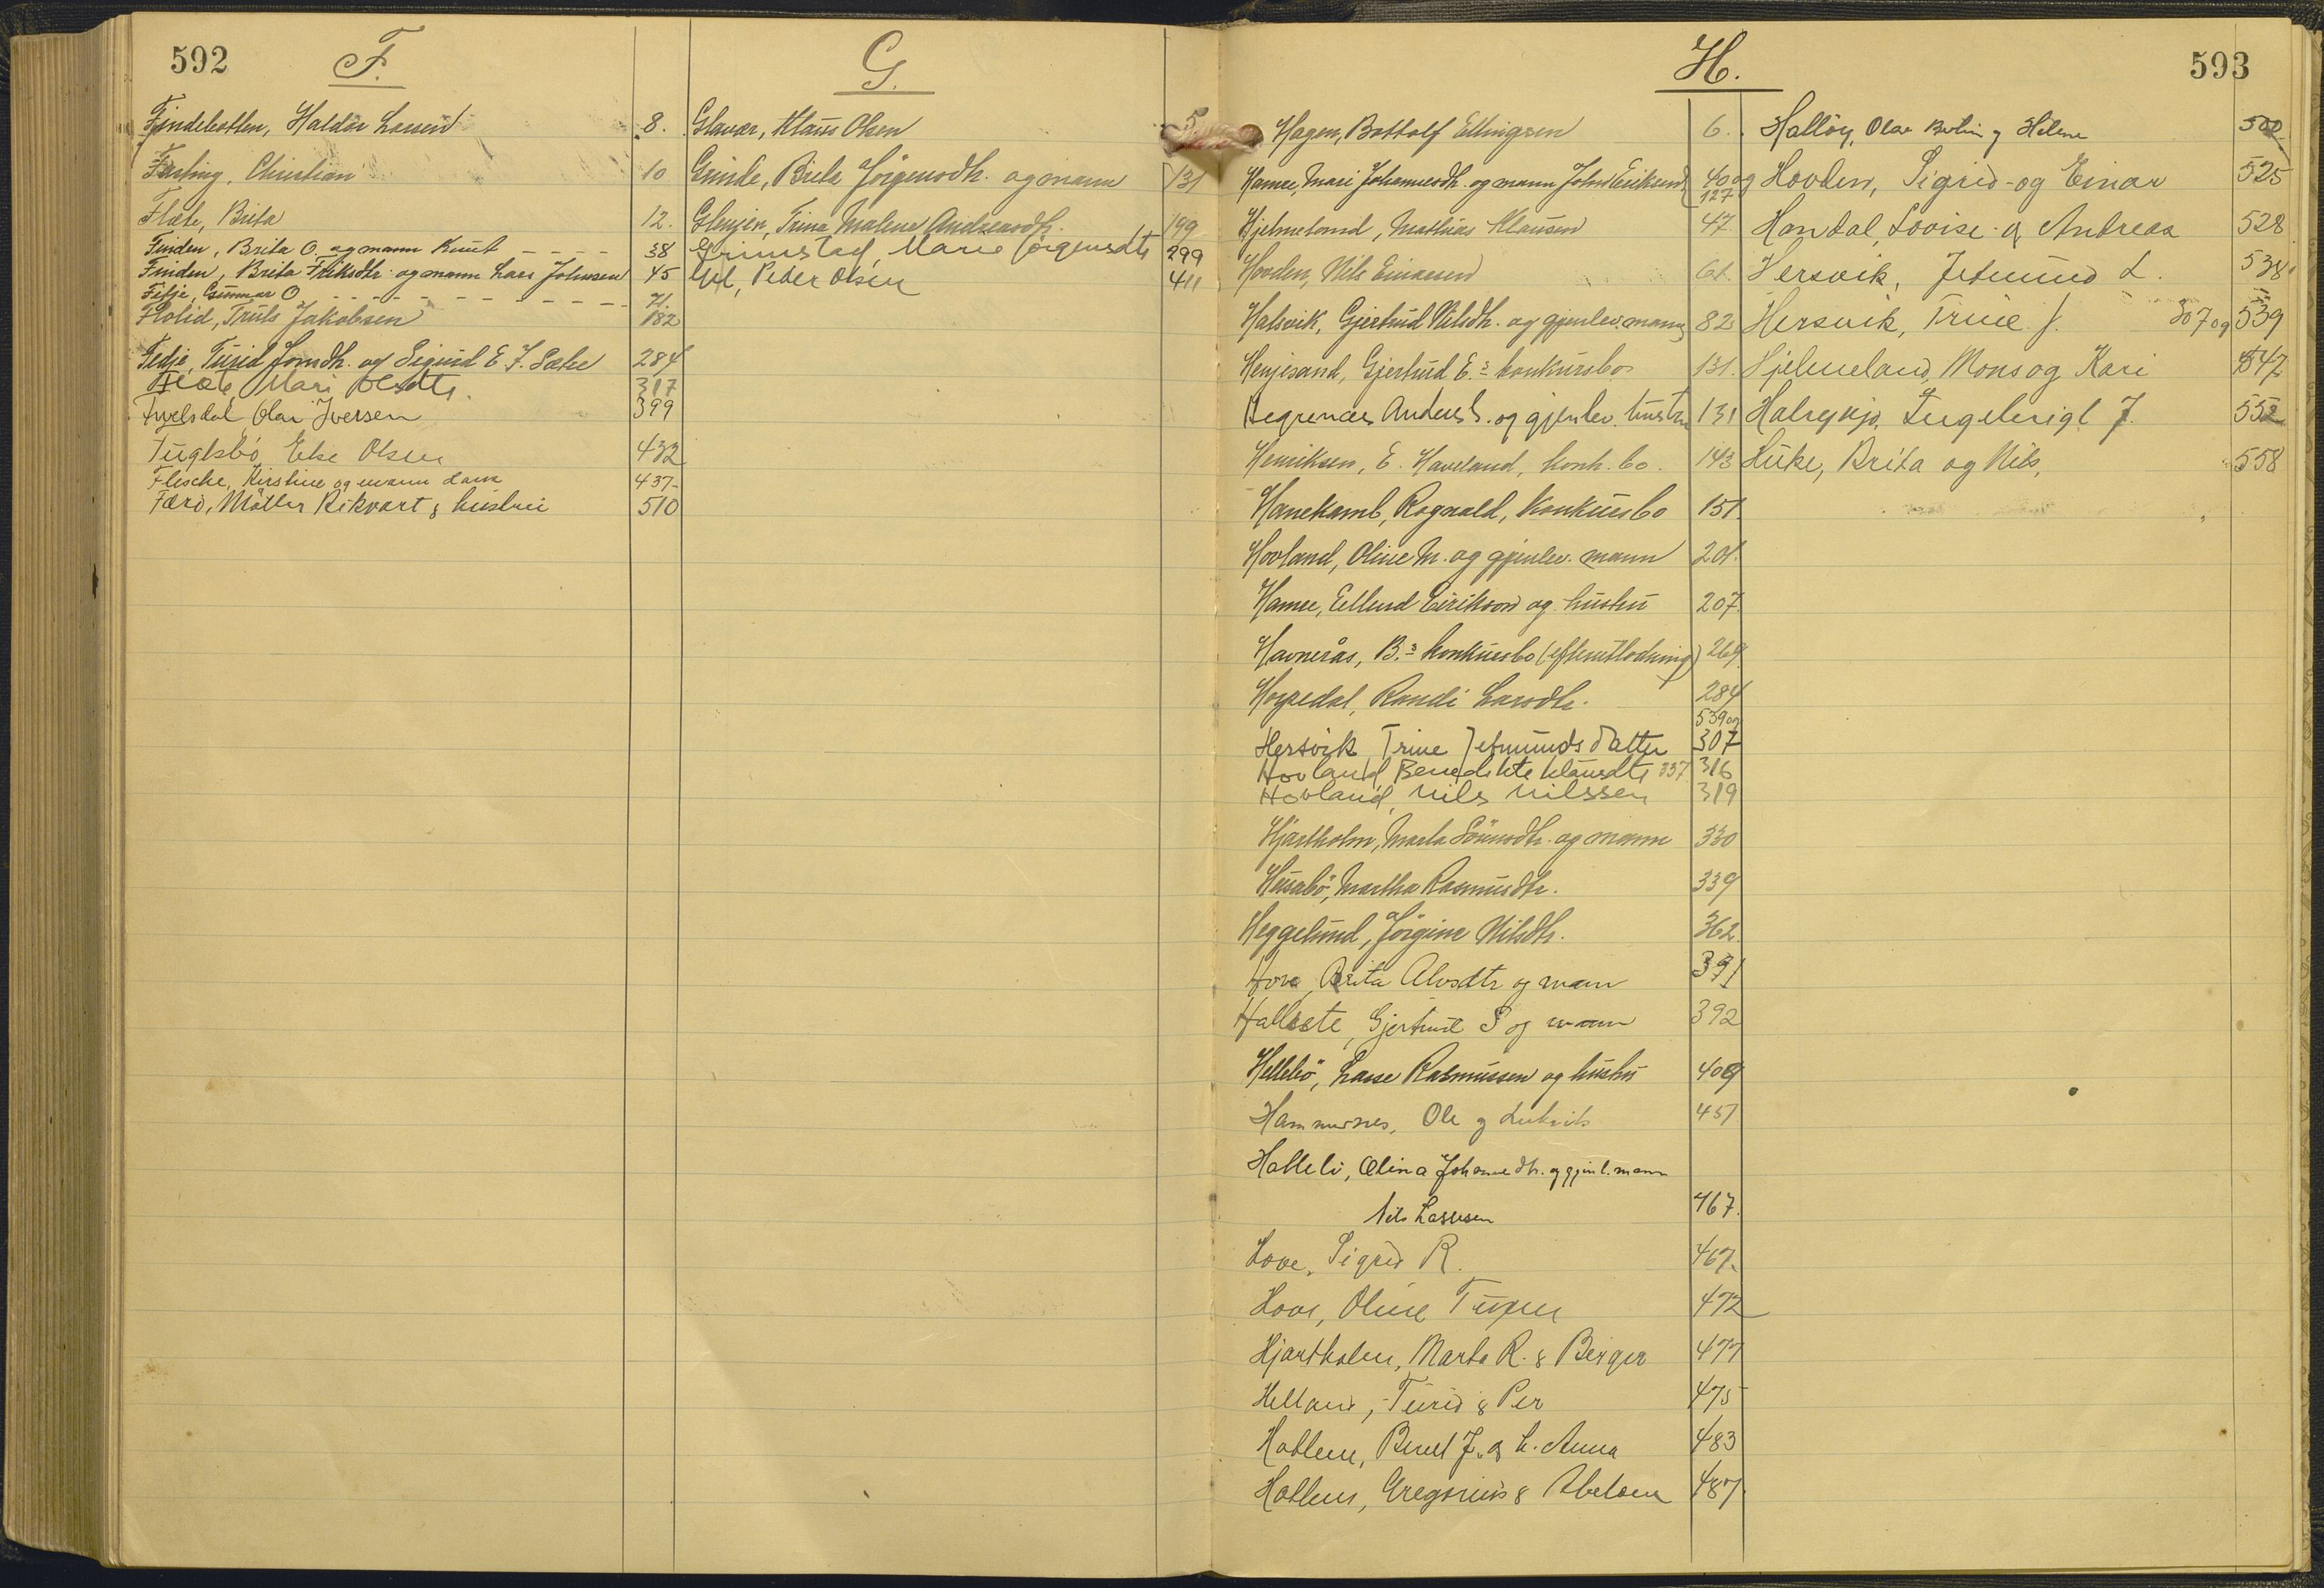 592
F.
Findebotten, Haldor Larsen 8.
Farting, Christian 10
Flæte, Brita 12.
Finden, Brita O. og mann Knut 38
Finden, Brita Eriksdtr. og mann Lars Johnsen 45
Fitje, Gunnar O 71.
Flolid, Truls Jakobsen 182
Fedje, Turid Jonsdtr. og Sigurd E. F. Sæte 284
Flæte, Mari Olsdtr. 317
Olai Iversen 399
Fuglsbö, Else Olsen 432
Flesche, Kirstine og mann Lars 437
Færö, Möller Rikvart & hustru 510
G.
Glavær, Klaus Olsen 5
Grinde, Brita Jörgensdtr. og mann 131
Glenjen, Trina Malene Andreasdtr. 199
Grimstad, Marie Jörgensdtr 299
Peder Olsen 411
593
H.
Hagen, Bottolf Ellingsen 6.
Hamre, Mari Johannesdtr. og mann John Eriksen 40 og 127
Hjelmeland, Mathias Klausen 47
Hovden, Nils Einarsen 61.
Halsvik, Gjertrud Nilsdtr. og gjenlev. mann 82
Henjesand, Gjertrud E.s konkursbo 131.
Hegrenæs Anders S. og gjenlev. hustru 131
Henriksen, E. Haveland, konk. bo. 143
Hanekamb, Rognald, Konkursbo 151.
Hovland, Oline M. og gjenlev. mann 201.
Hamre, Ellend Eirikson og hustru 207.
Havnerås, B.s konkursbo (efterutlodning) 269.
Hoppedal, Randi Larsdtr. 284
539 og
Hersvik Trine Jetmundsdatter 307
Hovland, Benedikte Klausdtr 337 316
Hovland, Nils Nilssen 319
Hjartholm, Marta Sörensdtr. og mann 330
Husabö, Martha Rasmusdtr. 339
Heggelund, Jörgine Nilsdtr. 362.
Hove, Brita Alvsdtr og mann 391
Hallsete, Gjertrud S og mann 392
Hellebö, Lasse Rasmussen og hustru 409
Hammersnes, Ole og Ludvik 457
Halleli, Elina Johannesdtr. og gjenl. mann
Nils Lassesen 467.
Hove, Sigrid R. 467.
Hove, Oline 472
Hjartholm, Marta R. & Berger 477
Helland, Turid & Per 475
Hatlem, Berent J. og h. Anna 483
Hatlem, Gregorius & Abelone 487
Hallöy, Olav Berlin og Helene 502
Hovden, Sigrid og Einar 525
Handal, Lovise og Andreas 528
Hersvik, Jetmund L. 538
Hersvik, Trine J. 307 og 539
Hjelmeland, Mons og Kari 547
Ingebrigt J. 552
Huke, Brita og Nils, 558